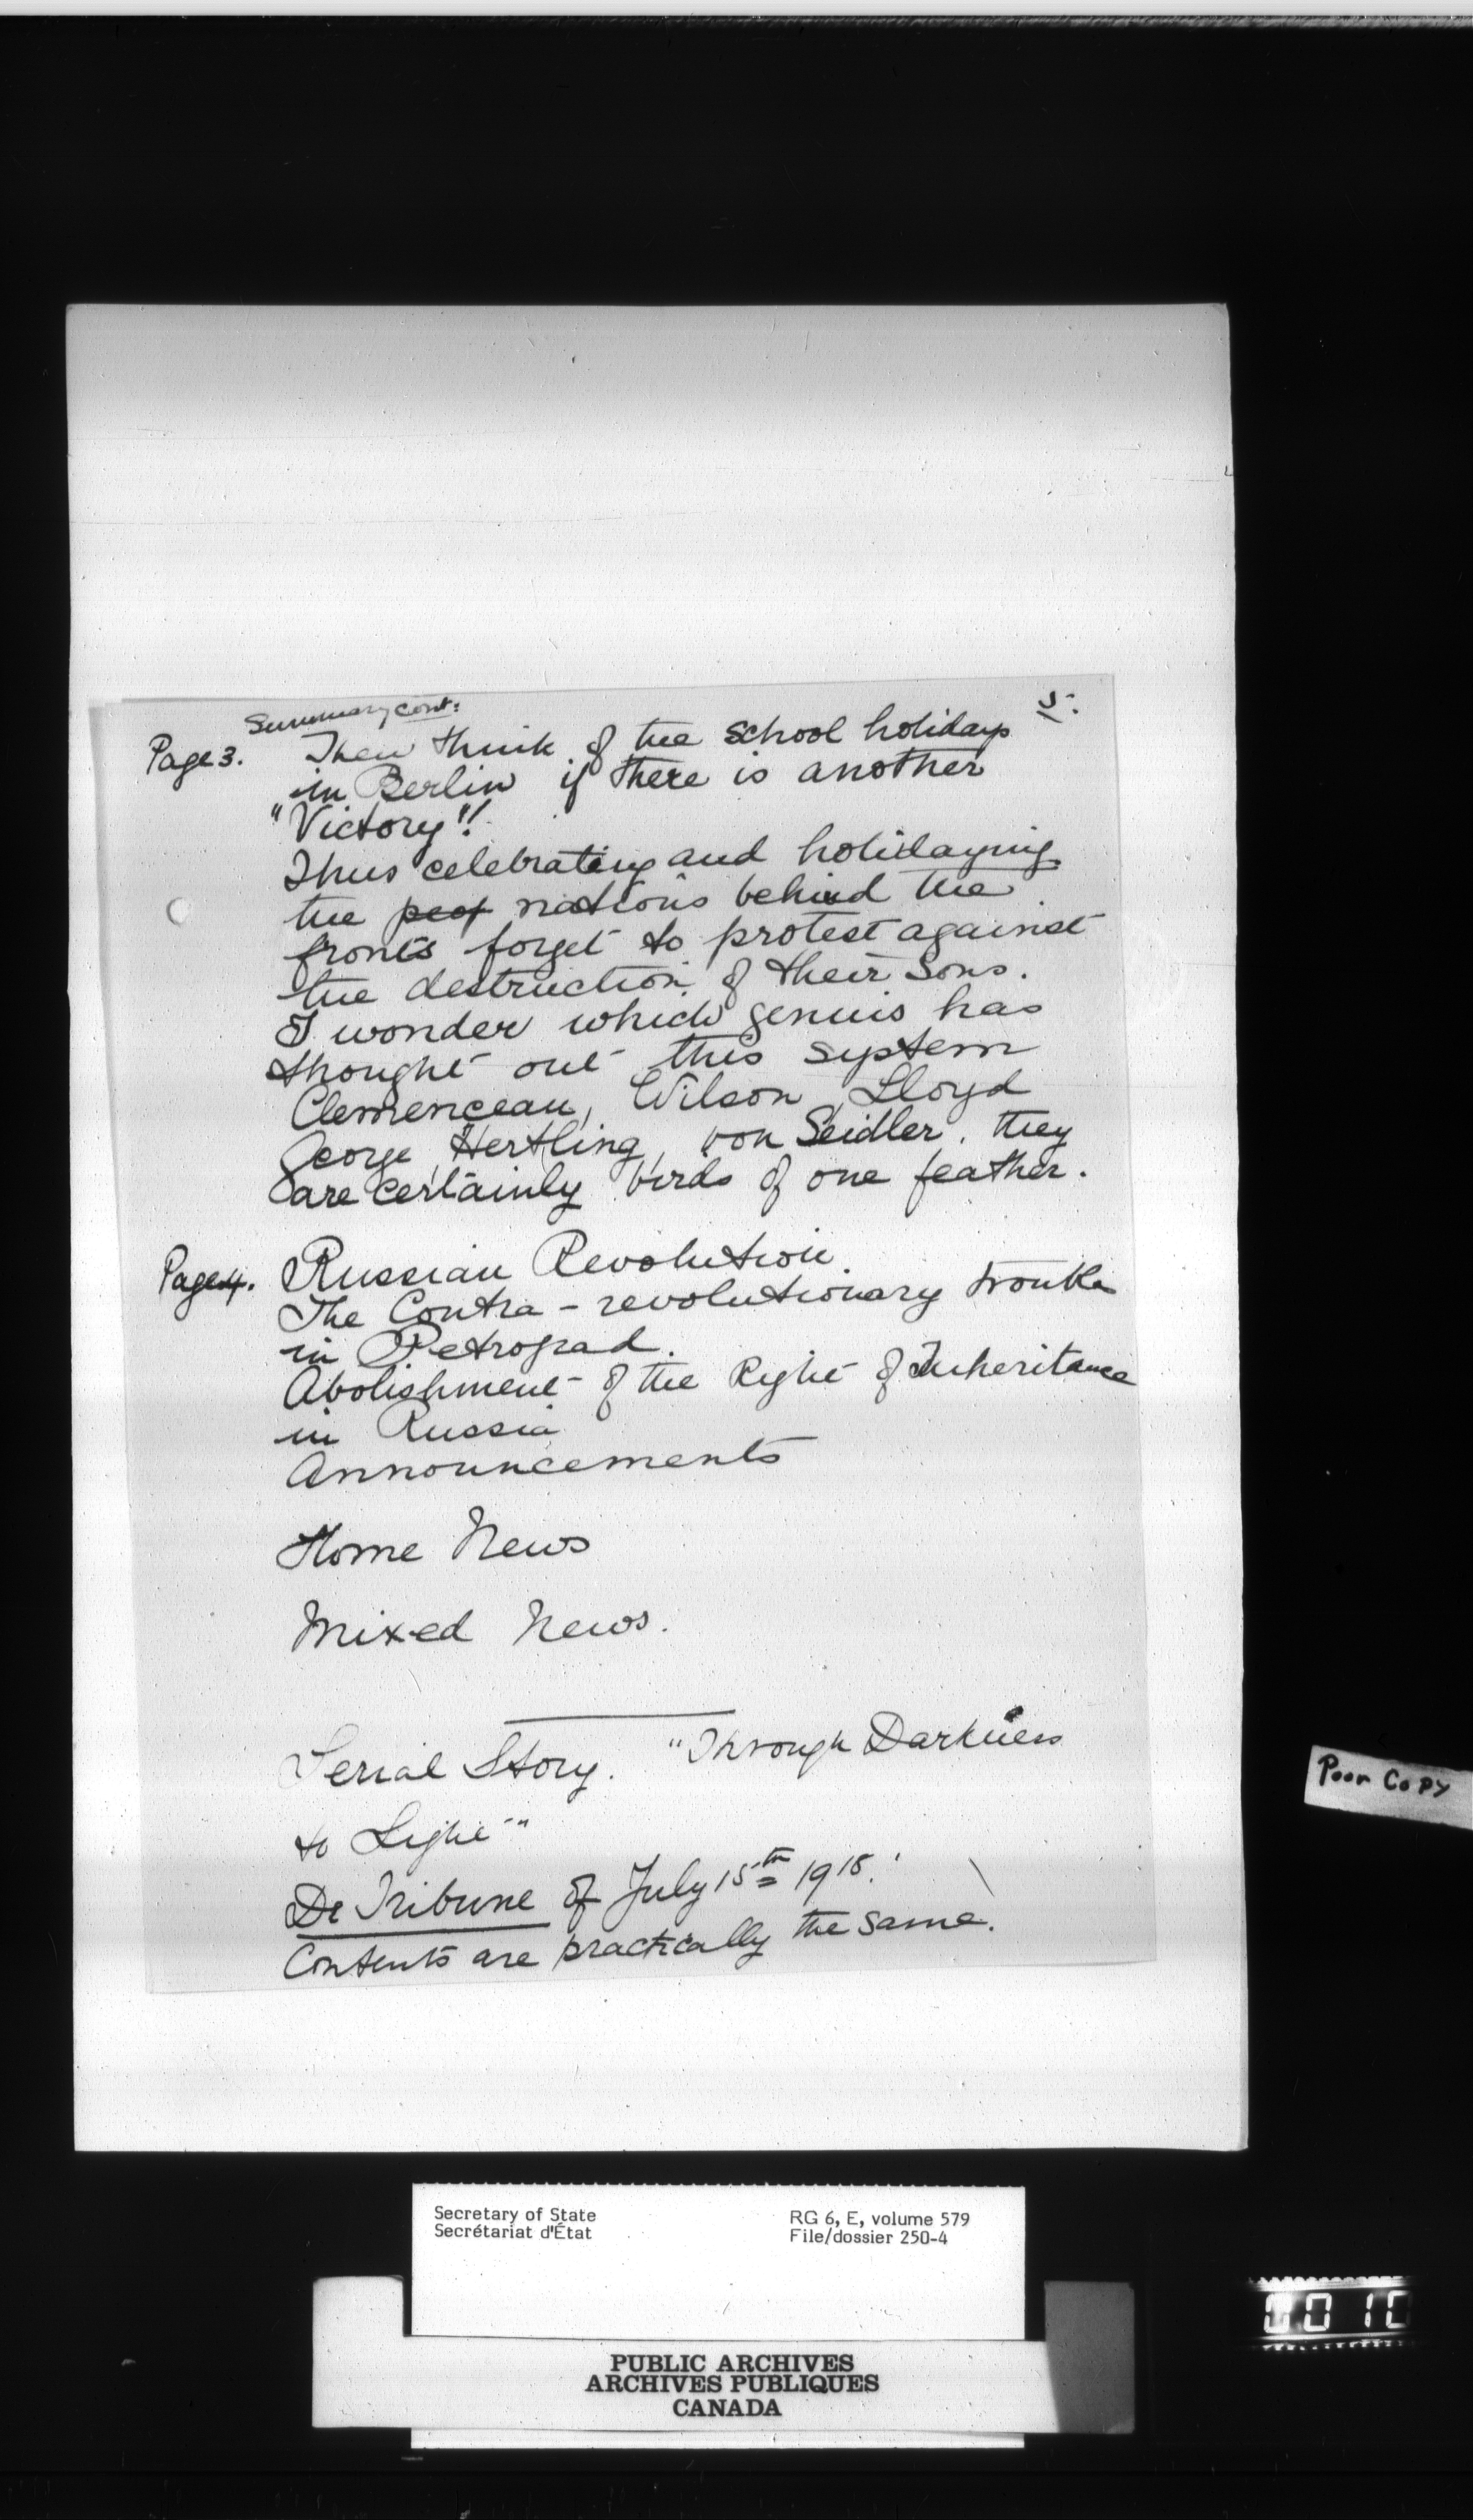 Summary cont: 5.
Page 3. Then think of the School holidays
in Berlin if there is another
"Victory"!
Thus celebrating and holidaying
the peop nations behind the
fronts forget to protest against
the destruction of their Sons.
I wonder which genius has
thought out this system
Clemenceau, Wilson, Lloyd
George, Hertling, von Seidler, they
are certainly birds of one feather.
Page 4. Russian Revolution.
The Contra-revolutionary trouble
in Petrograd.
Abolishment of the Right of Inheritance
in Russia
Announcements
Home News
Mixed News.
Serial Story. "Through Darkness
to Light"
De Tribune of July 15th 1918.
Contents are practically the same.
Poor Copy
Secretary of State
Secrétariat d'État
RG 6, E, volume 579
File/dossier 250-4
PUBLIC ARCHIVES
ARCHIVES PUBLIQUES
CANADA